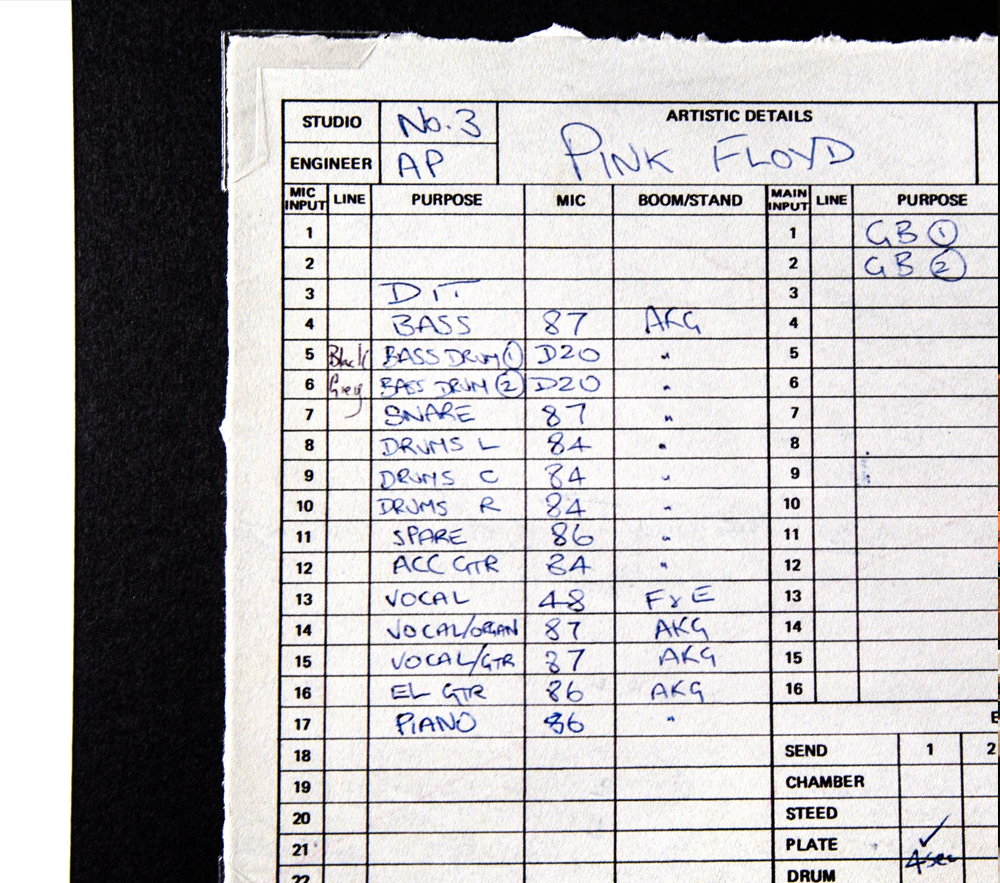 STUDIO No. 3 ARTISTIC DETAILS
ENGINEER AP PINK FLOYD
MIC INPUT LINE PURPOSE MIC BOOM/STAND MAIN INPUT LINE PURPOSE
1 1 GB ①
2 2 GB ②
3 DIT 3
4 BASS 87 AKG 4
5 Black BASS DRUM ① D20 " 5
6 Grey BASS DRUM ② D20 " 6
7 SNARE 87 " 7
8 DRUMS L 84 " 8
9 DRUMS C 84 " 9
10 DRUMS R 84 " 10
11 SPARE 86 " 11
12 ACC GTR 84 " 12
13 VOCAL 48 13
14 VOCAL/ORGAN 87 AKG 14
15 VOCAL/GTR 87 AKG 15
16 EL GTR 86 AKG 16
17 PIANO 86 "
18 SEND 1 2
19 CHAMBER
20 STEED
21 PLATE ✓
22 DRUM 4sec